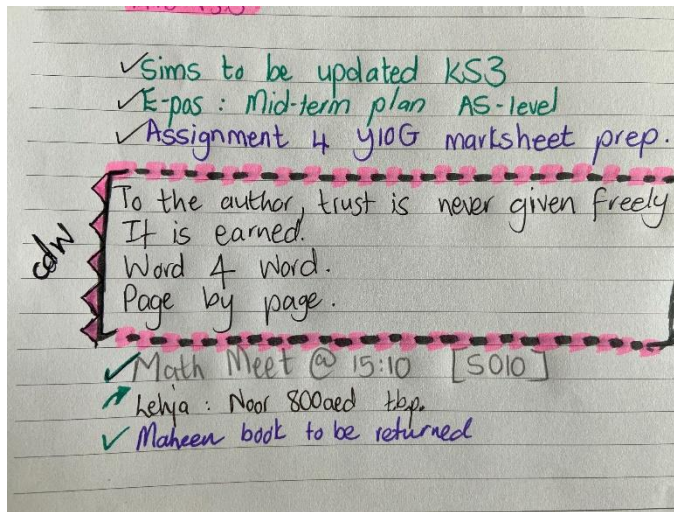 ✓Sims to be updated KS3
✓E-pos : Mid-term plan AS-level
✓Assignment 4 y10G marksheet prep.
cdw
To the author, trust is never given freely
It is earned.
Word 4 Word.
Page by page.
✓Math Meet @ 15:10 [S010]
Lehja : Noor 800aed tbp.
✓ Maheen book to be returned